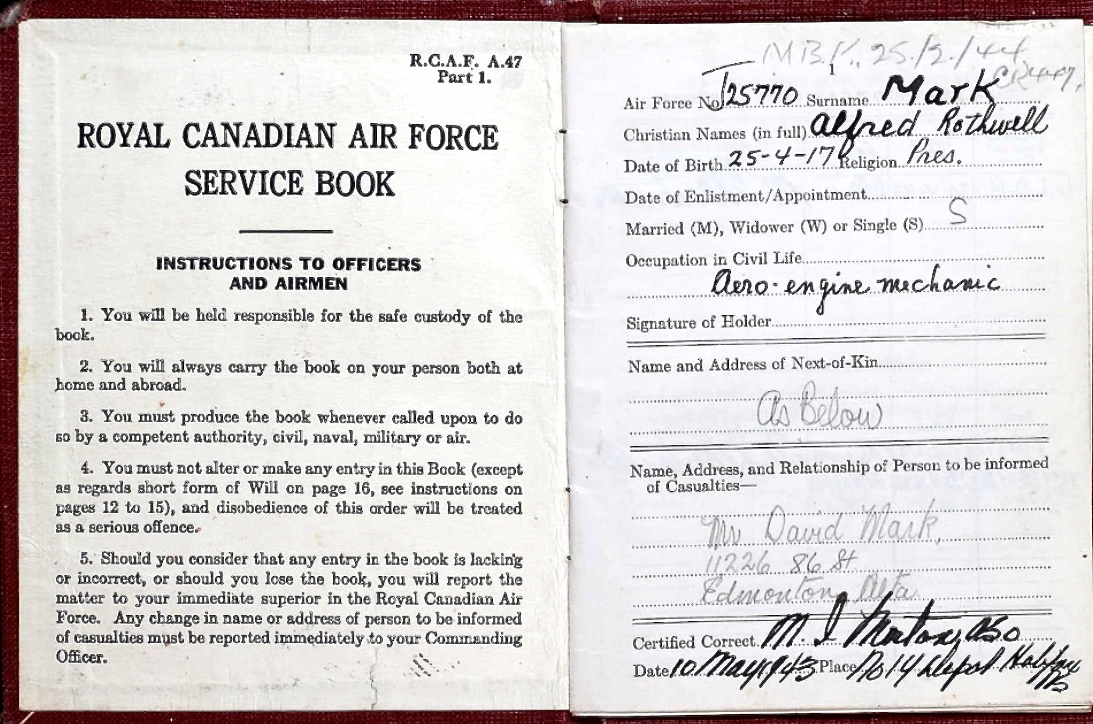 R.C.A.F. A.47
Part 1.
ROYAL CANADIAN AIR FORCE
SERVICE BOOK
INSTRUCTIONS TO OFFICERS
AND AIRMEN
1. You will be held responsible for the safe custody of the
book.
2. You will always carry the book on your person both at
home and abroad.
3. You must produce the book whenever called upon to do
so by a competent authority, civil, naval, military or air.
4. You must not alter or make any entry in this Book (except
as regards short form of Will on page 16, see instructions on
pages 12 to 15), and disobedience of this order will be treated
as a serious offence.
5. Should you consider that any entry in the book is lacking
or incorrect, or should you lose the book, you will report the
matter to your immediate superior in the Royal Canadian Air
Force. Any change in name or address of person to be informed
of casualties must be reported immediately to your Commanding
Officer.
25/2/44
1
Air Force No J25770 Surname Mark
Christian Names (in full) Alfred Rothwell
Date of Birth 25-4-17 Religion Pres.
Date of Enlistment/Appointment
Married (M), Widower (W) or Single (S) S
Occupation in Civil Life
Aero-engine mechanic
Signature of Holder
Name and Address of Next-of-Kin
As Below
Name, Address, and Relationship of Person to be informed
of Casualties—
Mr David Mark,
11226 86 St
Edmonton, Alta
Certified Correct
Date 10 May 1943 Place No 14 Depot Halifax
NS